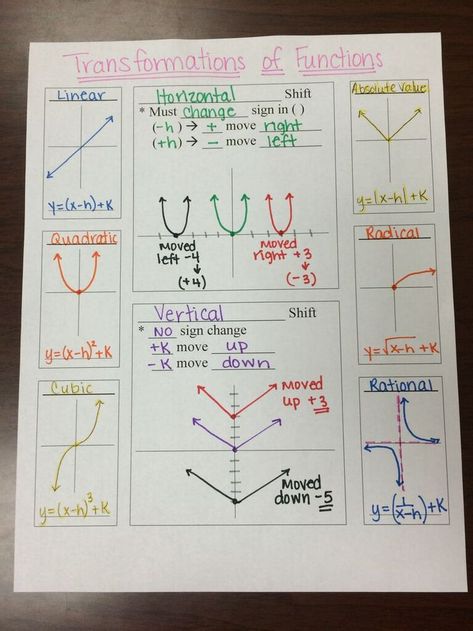 Transformations of Functions
Linear
y=(x-h)+K
Quadratic
y=(x-h)²+K
Cubic
y=(x-h)³+K
Horizontal Shift
* Must change sign in ( )
(-h) → + move right
(+h) → - move left
moved
left -4
(+4)
moved
right +3
(-3)
Vertical Shift
* NO sign change
+K move up
-K move down
moved
up +3
moved
down -5
Absolute Value
y=|x-h|+K
Radical
y=√x-h +K
Rational
y=(1/x-h)+K